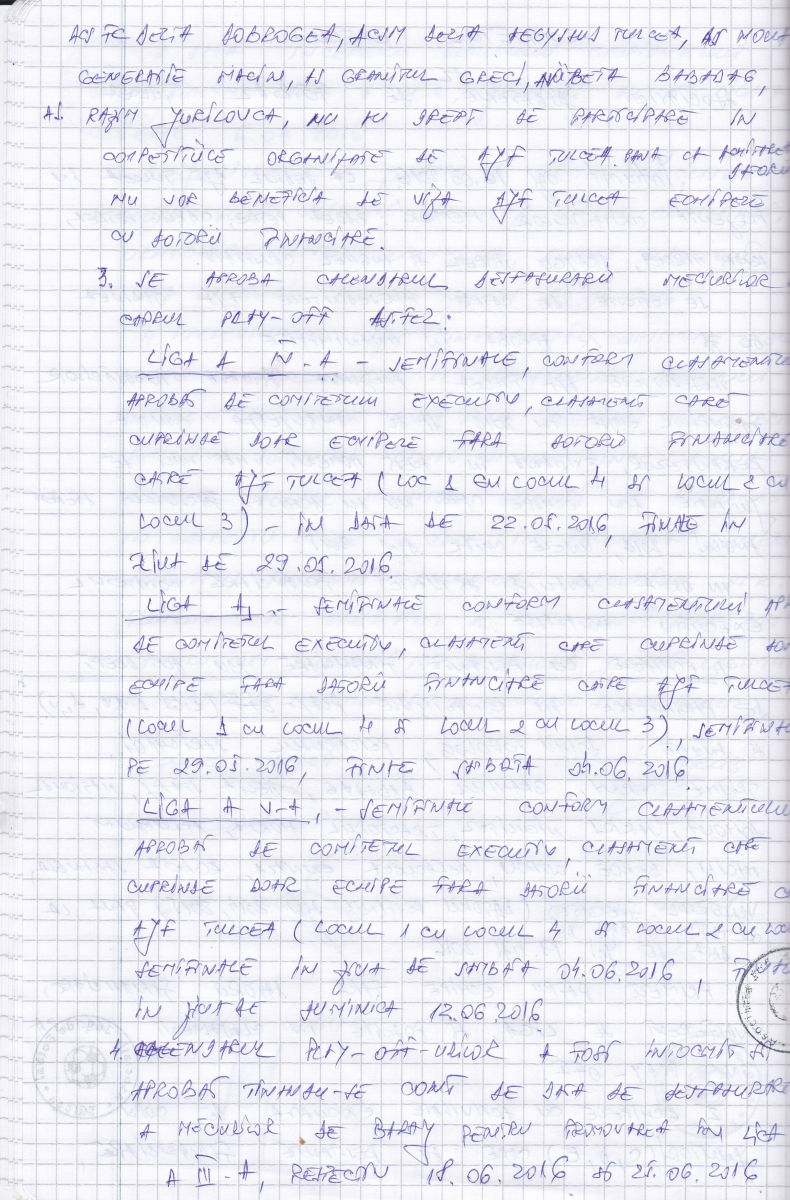 ACS FC DELTA DOBROGEA, ACSM DELTA AEGYSSUS TULCEA, AS NOUA
GENERATIE MACIN, AS GRANITUL GRECI, BETA BABADAG,
AS. RAZIM JURILOVCA, NU AU DREPT DE PARTICIPARE IN
COMPETITIILE ORGANIZATE DE AJF TULCEA PANA LA ACHITARE
DATORII
NU VOR BENEFICIA DE VIZA AJF TULCEA ECHIPELE
CU DATORII FINANCIARE.
3. SE APROBA CALENDARUL DESFASURARII MECIURILOR
CADRUL PLAY-OFF ASTFEL:
LIGA A IV-A - SEMIFINALE, CONFORM CLASAMENTULUI
APROBAT DE COMITETUL EXECUTIV, CLASAMENT CARE
CUPRINDE DOAR ECHIPELE FARA DATORII FINANCIARE
CATRE AJF TULCEA (LOC 1 CU LOCUL 4 SI LOCUL 2 CU
LOCUL 3) - IN DATA DE 22.05.2016, FINALE IN
ZIUA DE 29.05.2016.
LIGA A - SEMIFINALE CONFORM CLASAMENTULUI AP
DE COMITETUL EXECUTIV, CLASAMENT CARE CUPRINDE DO
ECHIPE FARA DATORII FINANCIARE CATRE AJF TULCEA
(LOCUL 1 CU LOCUL 4 SI LOCUL 2 CU LOCUL 3), SEMIFINA
PE 29.05.2016, FINALE SAMBATA 04.06.2016.
LIGA A V-A, - SEMIFINALE CONFORM CLASAMENTULUI
APROBAT DE COMITETUL EXECUTIV, CLASAMENT CARE
CUPRINDE DOAR ECHIPE FARA DATORII FINANCIARE C
AJF TULCEA (LOCUL 1 CU LOCUL 4 SI LOCUL 2 CU LOC
SEMIFINALE IN ZIUA DE SAMBATA 04.06.2016, FINAL
IN ZIUA DE DUMINICA 12.06.2016
4. CALENDARUL PLAY-OFF-URILOR A FOST INTOCMIT SI
APROBAT TINANDU-SE CONT DE DATA DE DESFASURARE
A MECIURILOR DE BARAJ PENTRU PROMOVAREA IN LIGA
A III-A, RESPECTIV 18.06.2016 SI 25.06.2016